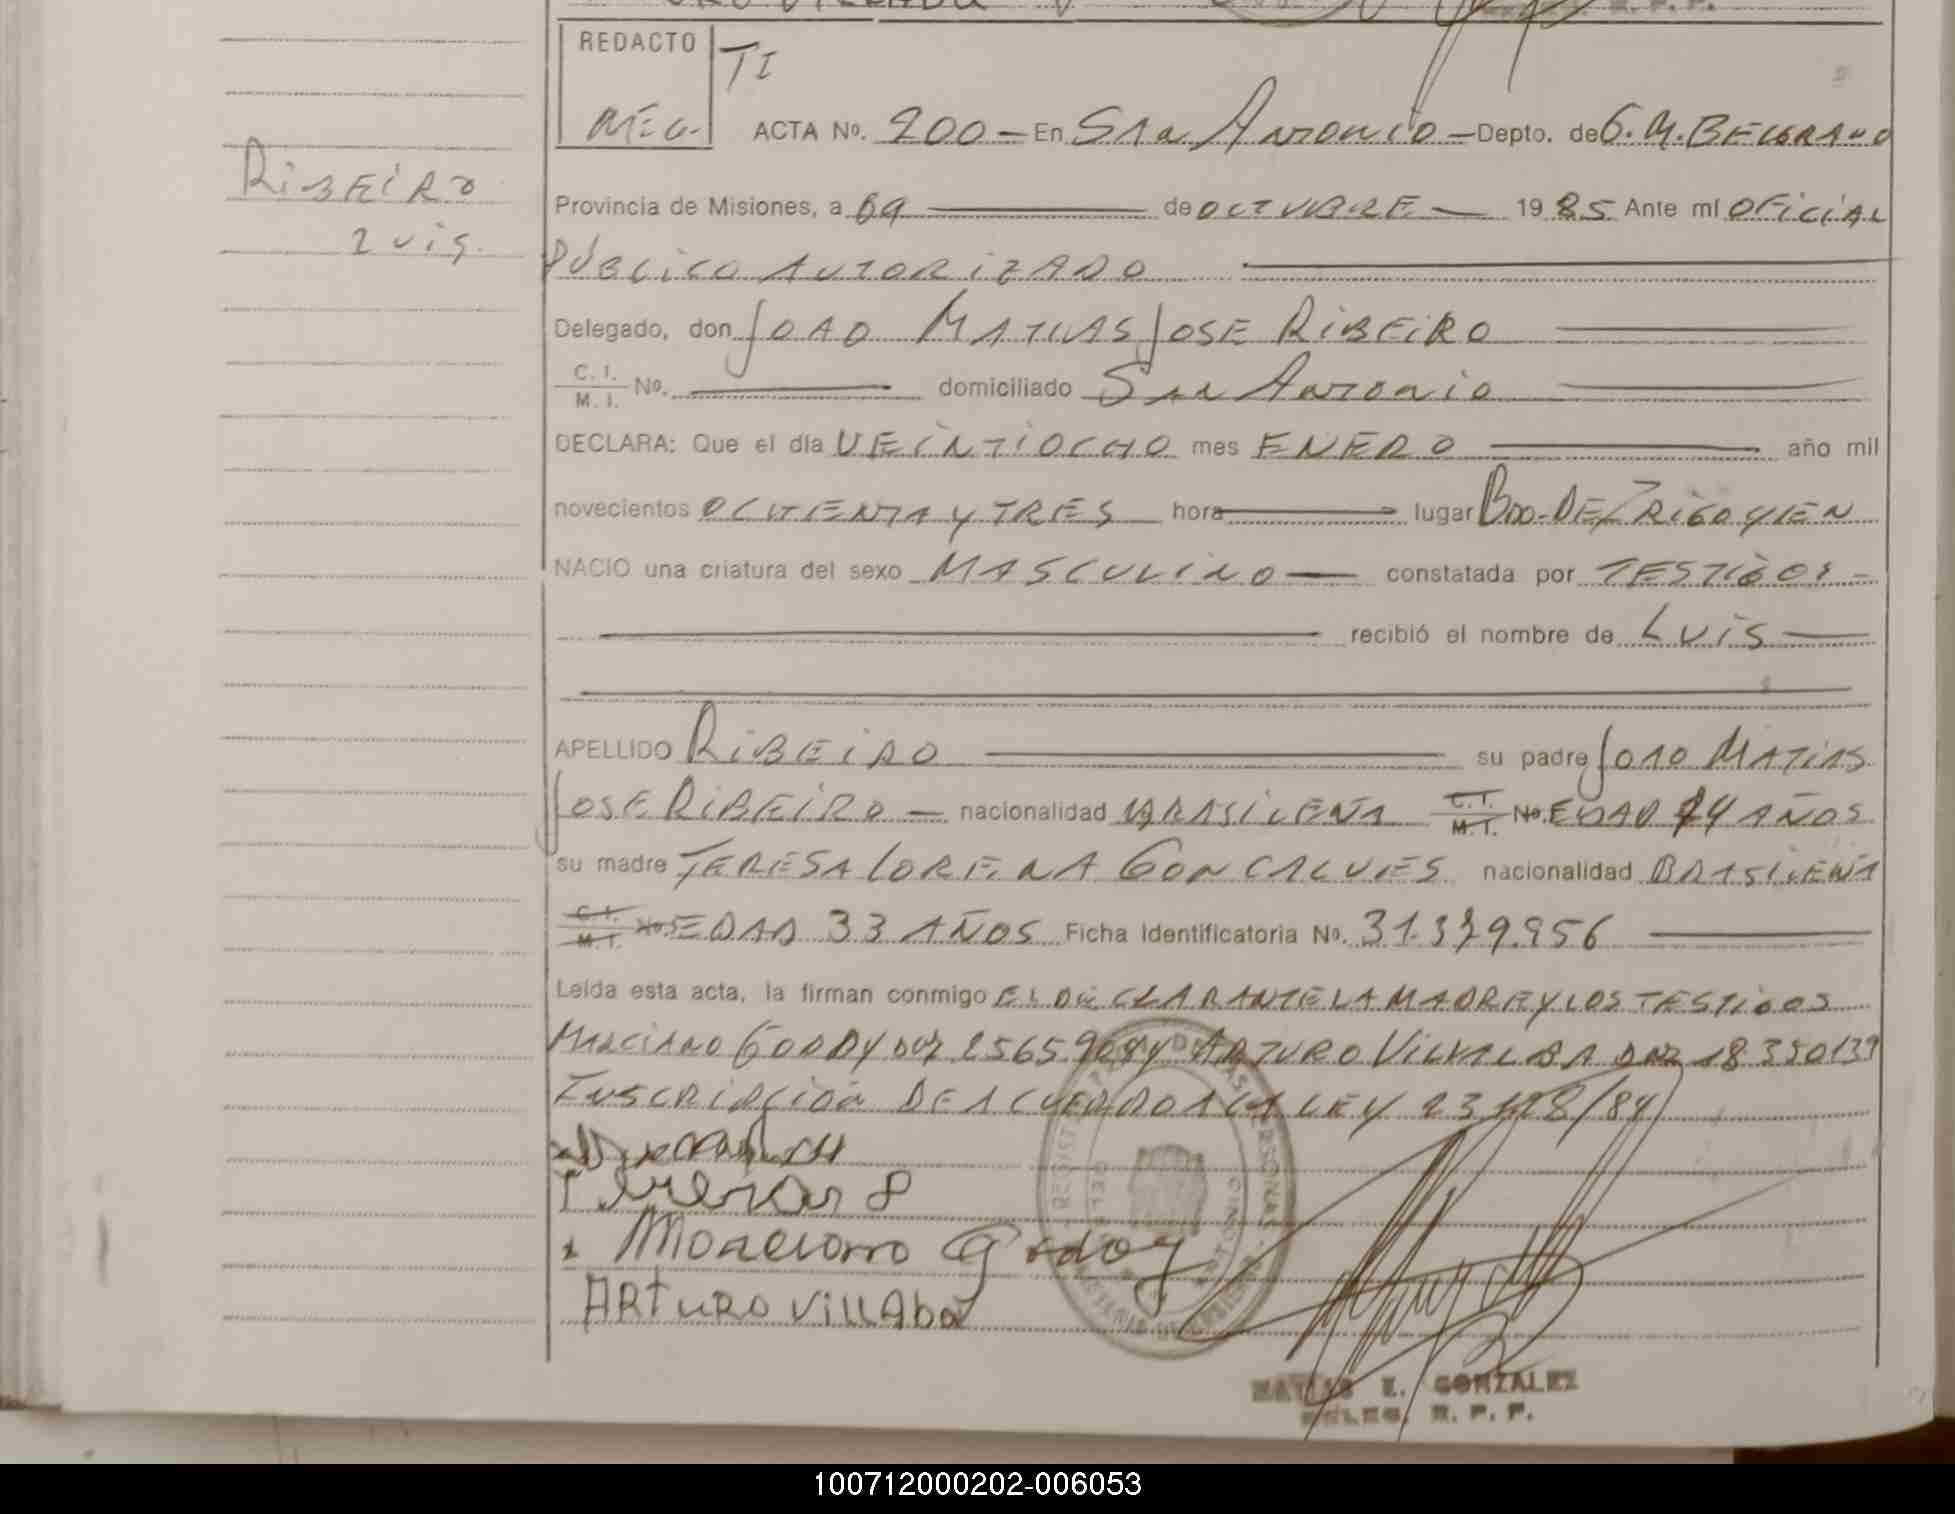 REDACTO
TI
ACTA Nº. 200 En San Antonio Depto. de G. M. BELGRANO
RIBEIRO
Luis.
Provincia de Misiones, a 09 de OCTUBRE 1985 Ante mí OFICIAL
PÚBLICO AUTORIZADO
Delegado, don JOAO MATIAS JOSE RIBEIRO
C. I.
M. I. Nº. domiciliado San Antonio
DECLARA: Que el día VEINTIOCHO mes ENERO año mil
novecientos OCHENTA Y TRES hora lugar BDO. DE IRIGOYEN
NACIO una criatura del sexo MASCULINO constatada por TESTIGOS
recibió el nombre de LUIS
APELLIDO RIBEIRO su padre JOAO MATIAS
JOSE RIBEIRO nacionalidad BRASILEÑA C. I. M. I. Nº. EDAD AÑOS
su madre TERESA LORENA GONCALVES nacionalidad BRASILEÑA
C. I. M. I. Nº. EDAD 33 AÑOS Ficha Identificatoria Nº. 31.379.956
Leída esta acta, la firman conmigo EL DECLARANTE LA MADRE Y LOS TESTIGOS
MARCIANO GODOY Y ARTURO VILLALBA DNI 18350139
INSCRIPCION DE ACUERDO A LA LEY
Marciano Godoy
ARTURO VILLAbа
MATIAS E. GONZALEZ
DELEG. R. P. P.
100712000202-006053